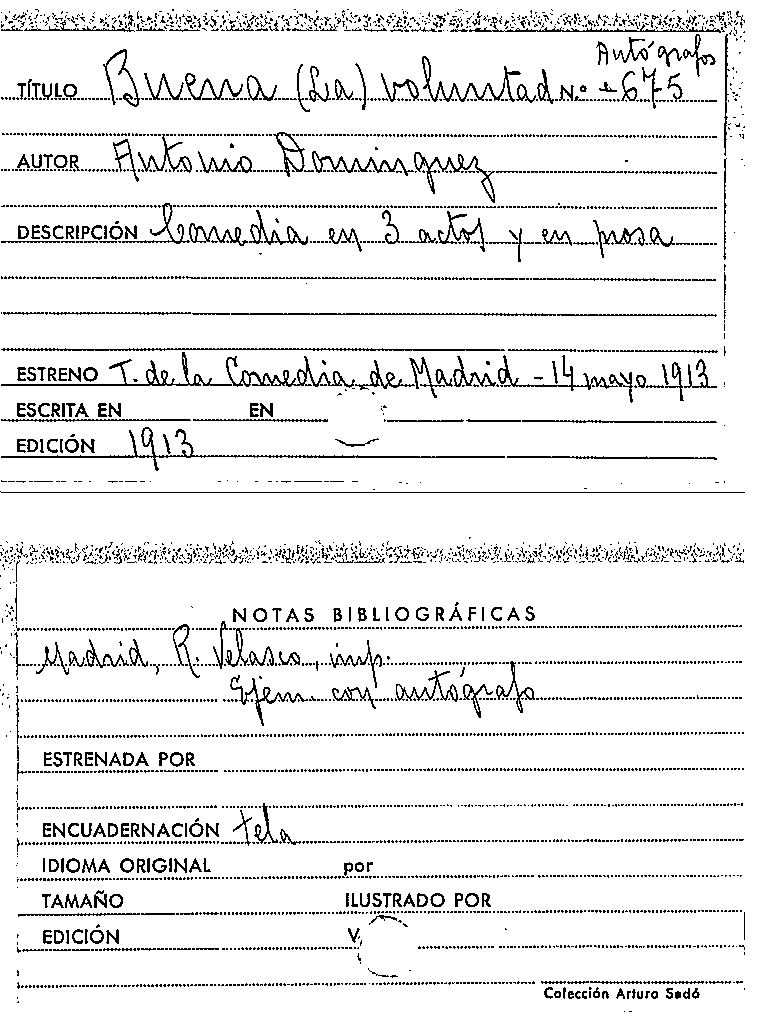 Autógrafos
TÍTULO Buena (La) voluntad N.º 675
AUTOR Antonio Dominguez
DESCRIPCIÓN Comedia en 3 actos y en prosa
ESTRENO T. de la Comedia de Madrid - 14 mayo 1913
ESCRITA EN EN
EDICIÓN 1913
NOTAS BIBLIOGRÁFICAS
Madrid, R. Velasco, imp.
Ejem. con autógrafo
ESTRENADA POR
ENCUADERNACIÓN tela
IDIOMA ORIGINAL por
TAMAÑO ILUSTRADO POR
EDICIÓN V.
Colección Arturo Sedó